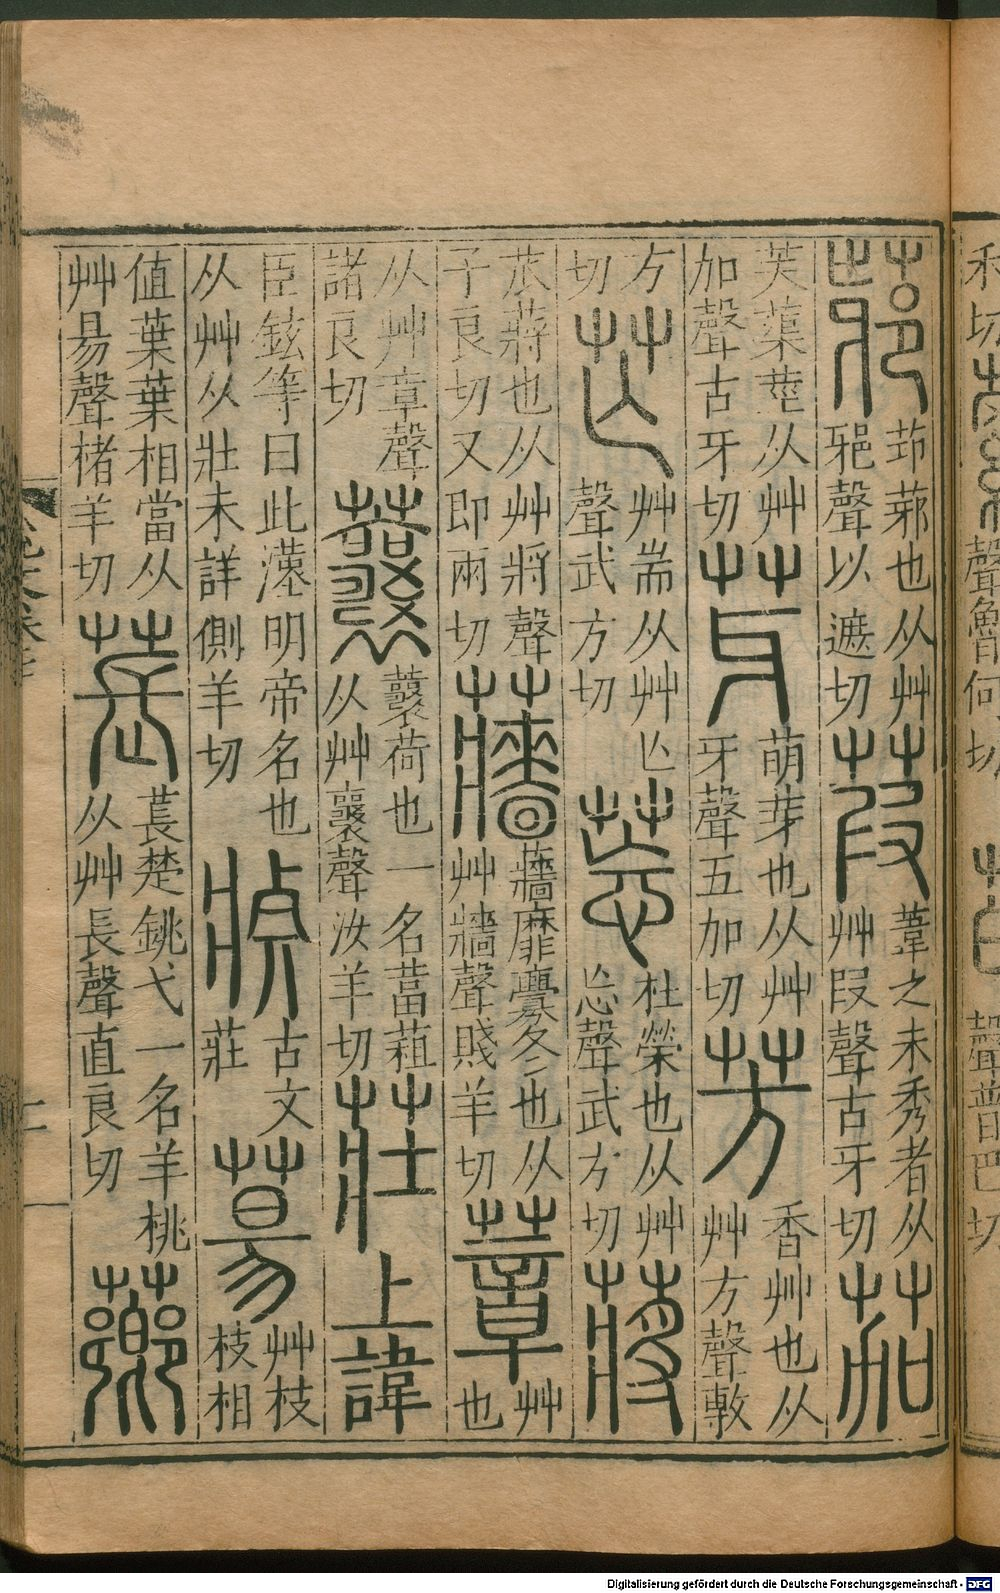 聲魯何切
聲普巴切
䓉茆䓉也从艸邪聲以遮切葭葦之未秀者从艸叚聲古牙切茄
芙蕖莖从艸加聲古牙切芽萌芽也从艸牙聲五加切芳香艸也从艸方聲敷
方切芒艸耑从艸亾聲武方切莣杜榮也从艸㤀聲武方切蔣
苽蔣也从艸將聲子良切又即兩切蘠蘠靡虋冬也从艸牆聲賤羊切蔁艸也
从艸章聲諸良切蘘蘘荷也一名葍蒩从艸襄聲汝羊切莊上諱
臣鉉等曰此漢明帝名也从艸从壯未詳側羊切古文莊艸枝枝相
值葉葉相當从艸昜聲楮羊切萇萇楚銚弋一名羊桃从艸長聲直良切薌
Digitalisierung gefördert durch die Deutsche Forschungsgemeinschaft - DFG